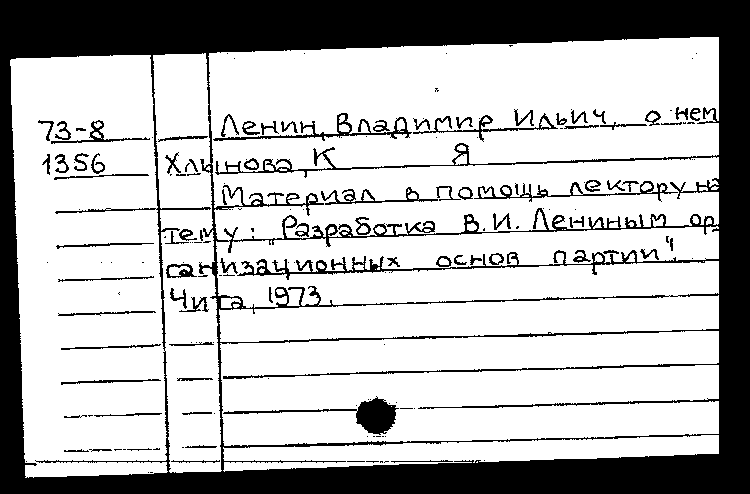 73-8 Ленин, Владимир Ильич, о нем
1356 Хлынова, К Я
Материал в помощь лектору на
тему: „Разработка В.И. Лениным ор-
ганизационных основ партии".
Чита, 1973.